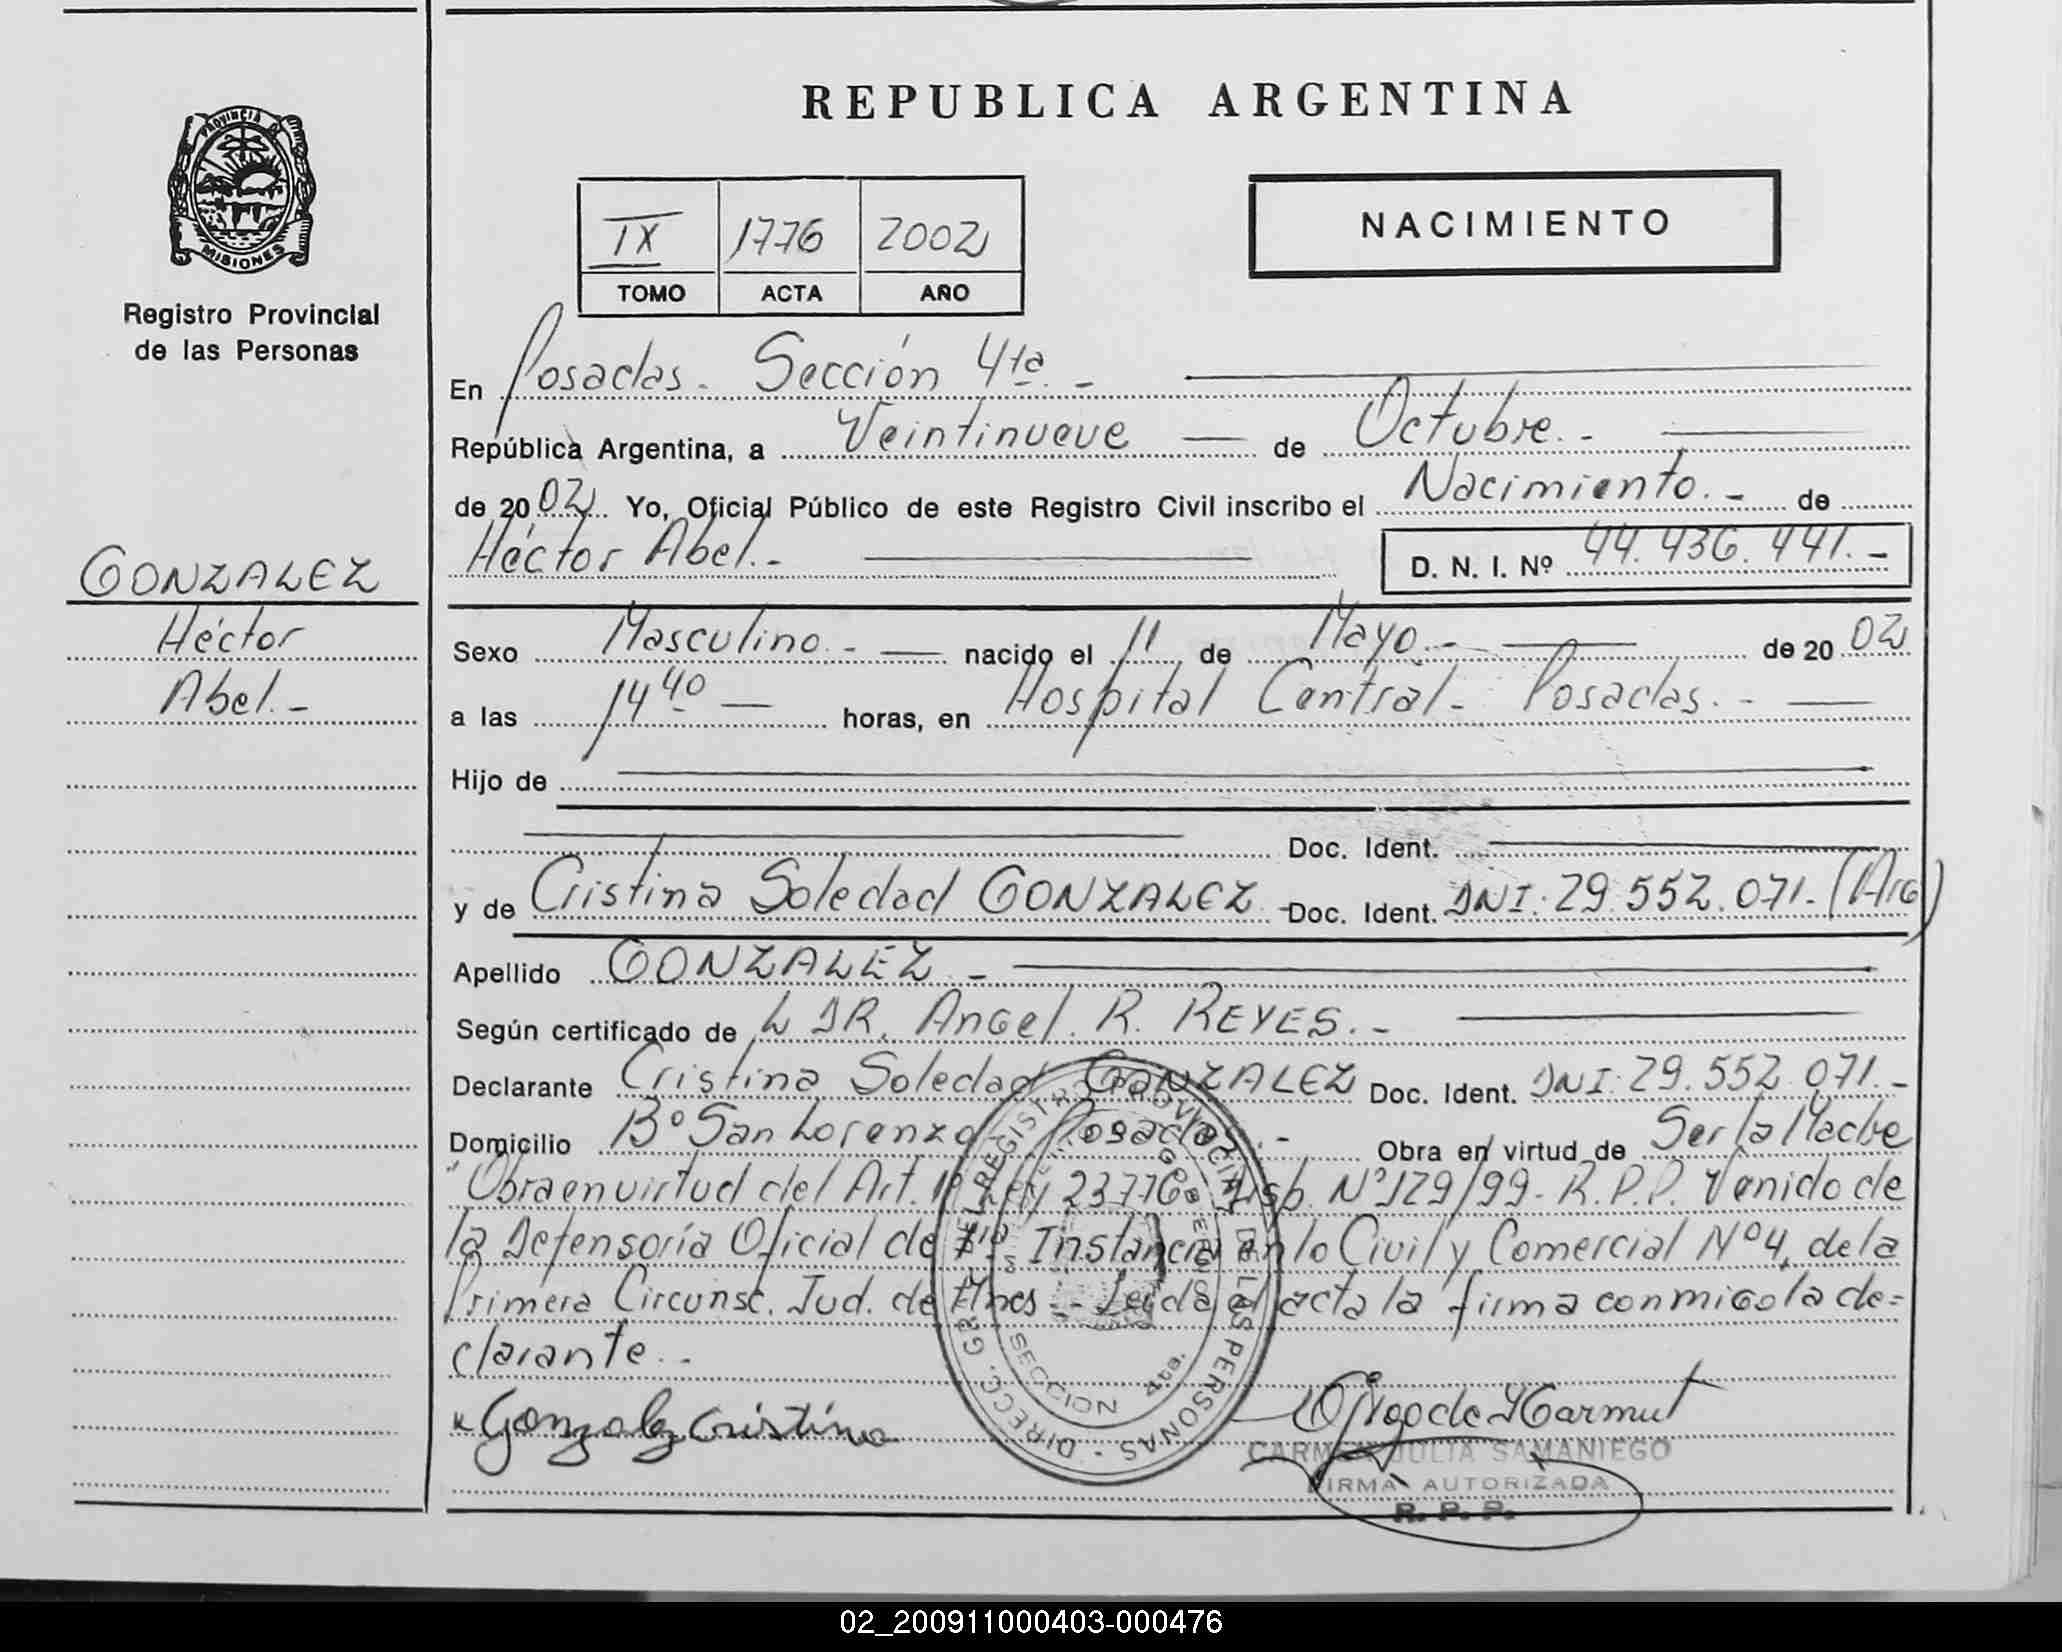 REPUBLICA ARGENTINA
PROVINCIA DE
MISIONES
Registro Provincial
de las Personas
IX 1776 2002
TOMO ACTA AÑO
NACIMIENTO
En Posadas. Sección 4ta. -
República Argentina, a Veintinueve — de Octubre. -
de 2002 Yo, Oficial Público de este Registro Civil inscribo el Nacimiento. - de
Héctor Abel. - D. N. I. Nº 44.436.441. -
GONZALEZ
Héctor
Abel. -
Sexo Masculino. - nacido el 11 de Mayo. - de 2002
a las 14 40 — horas, en Hospital Central - Posadas. -
Hijo de
Doc. Ident.
y de Cristina Soledad GONZALEZ - Doc. Ident. DNI: 29.552.071. - (Arg)
Apellido GONZALEZ. -
Según certificado de L DR. Angel. R. REYES. -
Declarante Cristina Soledad GONZALEZ Doc. Ident. DNI: 29.552.071. -
Domicilio Bº San Lorenzo - Posadas. - Obra en virtud de Ser la Madre
"Obra en virtud del Art. 1º Ley 23776 - Disp. Nº 129/99 - R.P.P. Venido de
la Defensoría Oficial de 1ra Instancia en lo Civil y Comercial Nº 4, de la
Primera Circunsc. Jud. de Mnes. - Leída el acta la firma conmigo la de=
clarante. -
Gonzalez Cristina
DIRECC. GRAL. DEL REGISTRO PROVINCIAL DE LAS PERSONAS -
GOBIERNO
SECCION 4ta.
CARMEN JULIA SAMANIEGO
FIRMA AUTORIZADA
R. P. P.
02_200911000403-000476